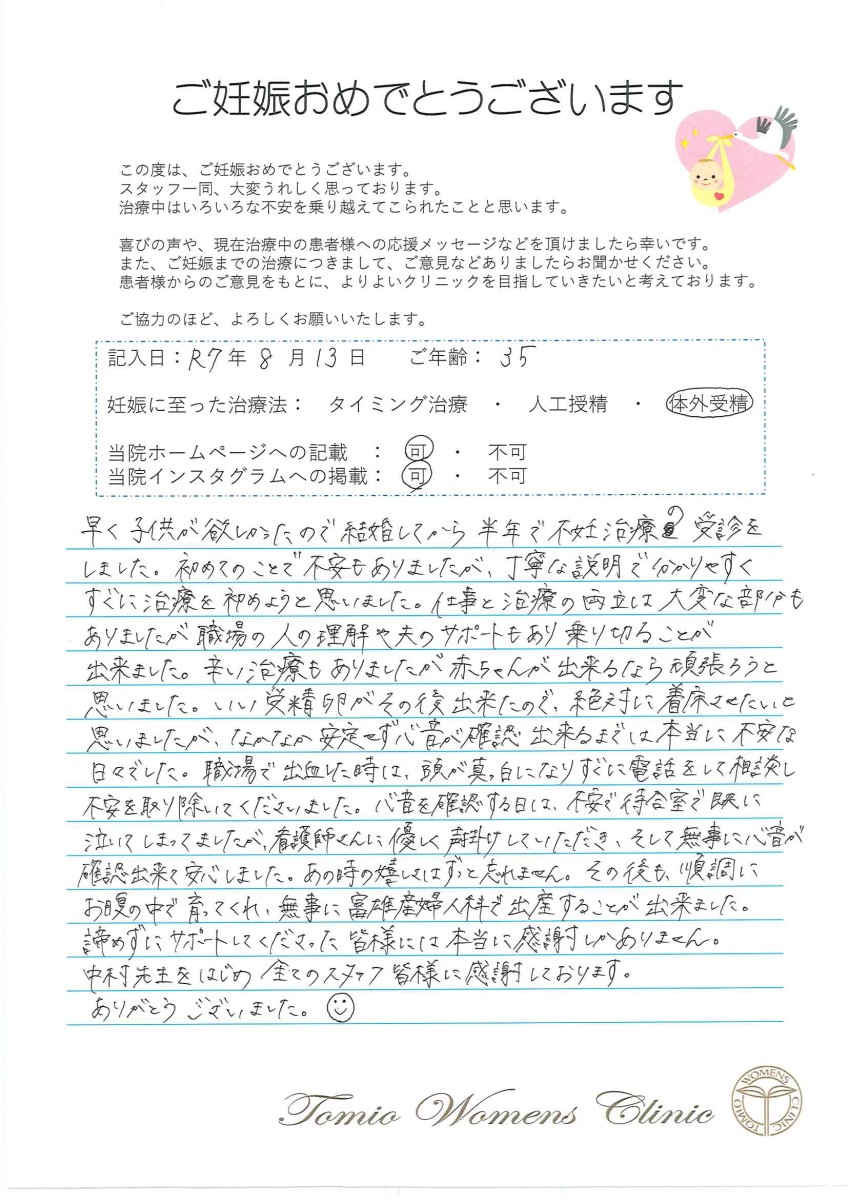 ご妊娠おめでとうございます
この度は、ご妊娠おめでとうございます。
スタッフ一同、大変うれしく思っております。
治療中はいろいろな不安を乗り越えてこられたことと思います。
喜びの声や、現在治療中の患者様への応援メッセージなどを頂けましたら幸いです。
また、ご妊娠までの治療につきまして、ご意見などありましたらお聞かせください。
患者様からのご意見をもとに、よりよいクリニックを目指していきたいと考えております。
ご協力のほど、よろしくお願いいたします。
記入日：R7年 8 月 13 日 ご年齢： 35
妊娠に至った治療法： タイミング治療 ・ 人工授精 ・ 体外受精
当院ホームページへの記載 ： 可 ・ 不可
当院インスタグラムへの掲載： 可 ・ 不可
早く子供が欲しかったので結婚してから半年で不妊治療の受診を
しました。初めてのことで不安もありましたが、丁寧な説明で分かりやすく
すぐに治療を初めようと思いました。仕事と治療の両立は大変な部分も
ありましたが職場の人の理解や夫のサポートもあり乗り切ることが
出来ました。辛い治療もありましたが赤ちゃんが出来るなら頑張ろうと
思いました。いい受精卵がその後出来たので、絶対に着床させたいと
思いましたが、なかなか安定せず心音が確認出来るまでは本当に不安な
日々でした。職場で出血した時は、頭が真っ白になりすぐに電話をして相談し
不安を取り除いてくださいました。心音を確認する日は、不安で待合室で既に
泣いてしまってましたが、看護師さんに優しく声掛けしていただき、そして無事に心音が
確認出来て安心しました。あの時の嬉しさはずっと忘れません。その後も、順調に
お腹の中で育ってくれ、無事に富雄産婦人科で出産することが出来ました。
諦めずにサポートしてくださった皆様には本当に感謝しかありません。
中村先生をはじめ全てのスタッフ皆様に感謝しております。
ありがとうございました。
Tomio Womens Clinic
WOMENS CLINIC TOMIO